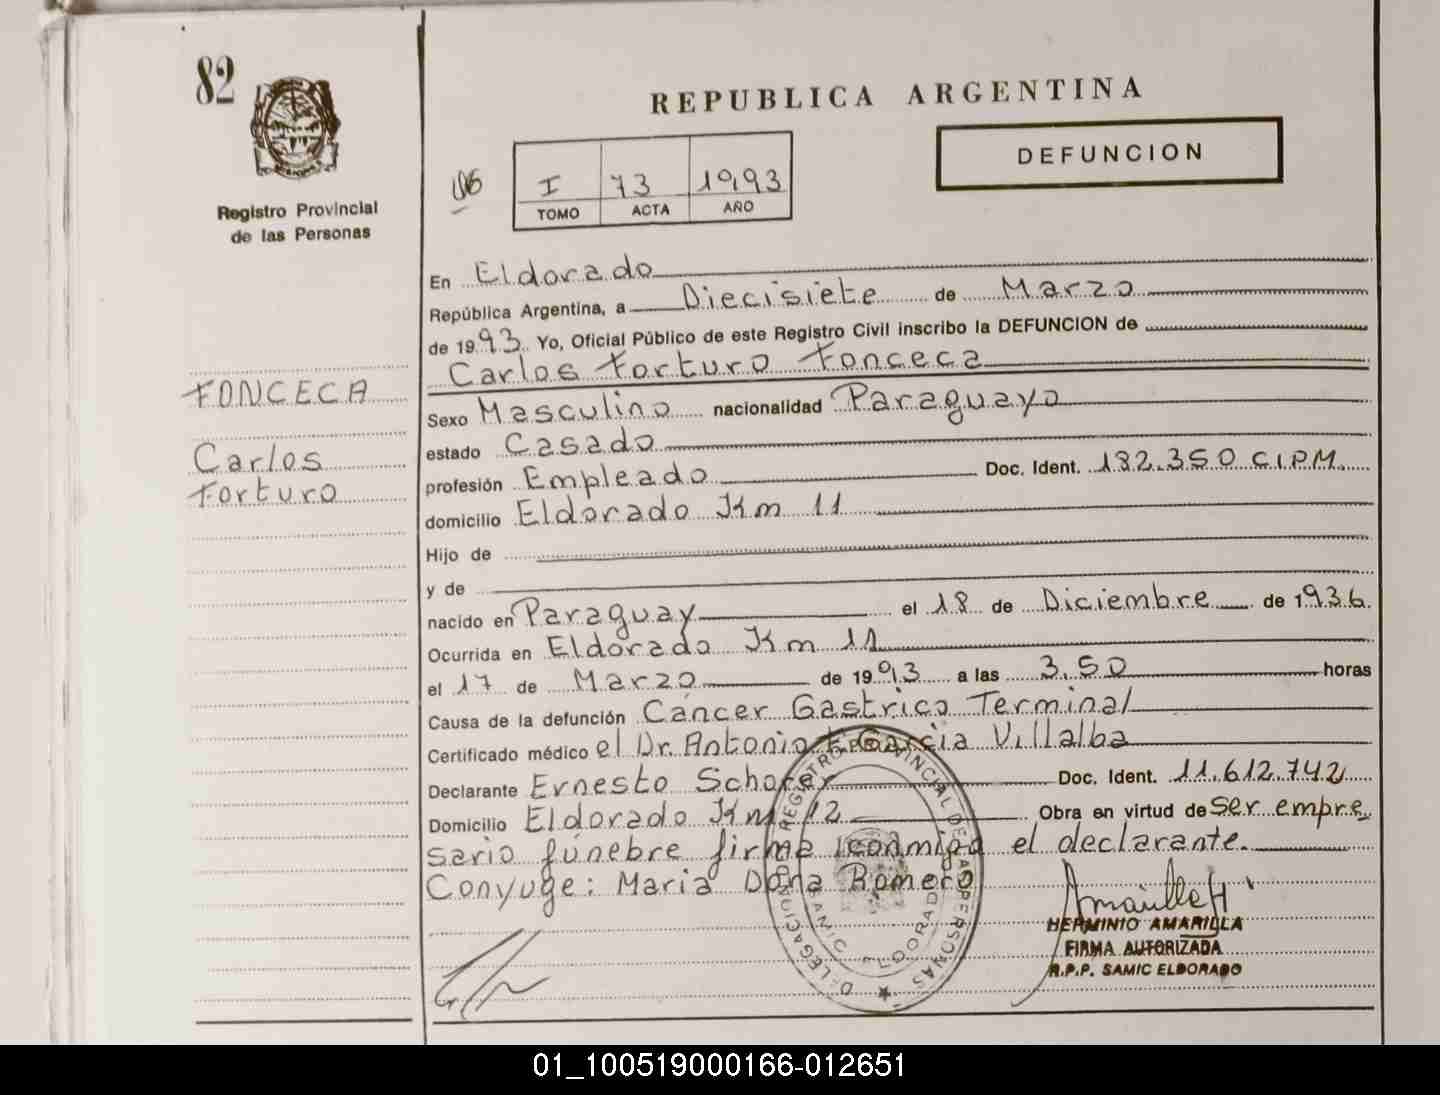 82
REPUBLICA ARGENTINA
DEFUNCION
I 73 1993
TOMO ACTA AÑO
Registro Provincial
de las Personas
En Eldorado
República Argentina, a Diecisiete de Marzo
de 1993 Yo, Oficial Público de este Registro Civil inscribo la DEFUNCION de
Carlos Forturo Fonceca
FONCECA
Carlos
Forturo
Sexo Masculino nacionalidad Paraguayo
estado Casado
profesión Empleado Doc. Ident. 182.350 C.I.P.M.
domicilio Eldorado Km 11
Hijo de
y de
nacido en Paraguay el 18 de Diciembre de 1936
Ocurrida en Eldorado Km 11
el 17 de Marzo de 1993 a las 3.50 horas
Causa de la defunción Cáncer Gastrico Terminal
Certificado médico el Dr. Antonio Garcia Villalba
Declarante Ernesto Schofer Doc. Ident. 11.612.742
Domicilio Eldorado Km 12 Obra en virtud de ser empre
sario fúnebre firma conmigo el declarante.
Conyuge: Maria Romero
DELEGACION REGISTRO PROVINCIAL DE LAS PERSONAS
SAMIC ELDORADO
HERMINIO AMARILLA
FIRMA AUTORIZADA
R.P.P. SAMIC ELDORADO
01_100519000166-012651